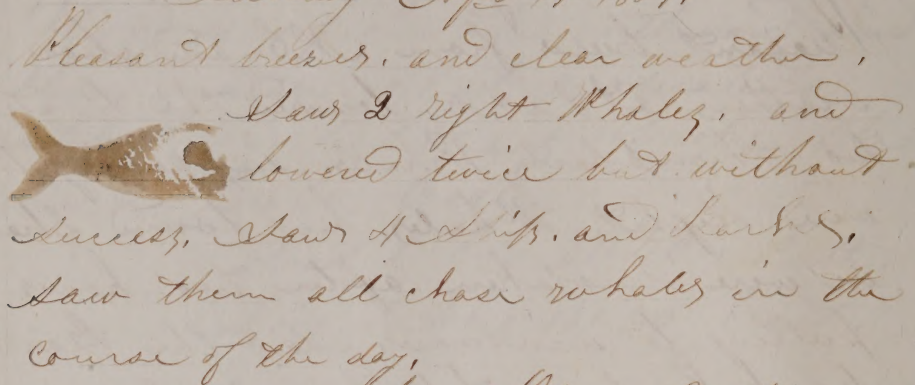 Pleasant breezes. and clear weather.
Saw 2 right Whales. and
lowered twice but without
success. Saw 4 Ships. and
saw them all chase whales in the
course of the day.